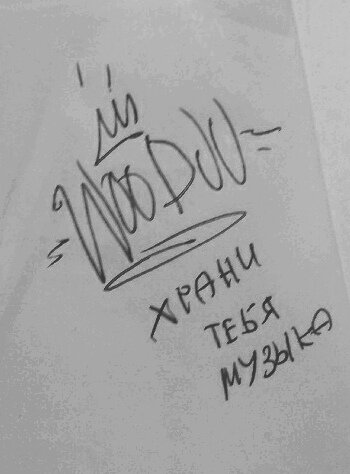 WOODJU
ХРАНИ
ТЕБЯ
МУЗЫКА